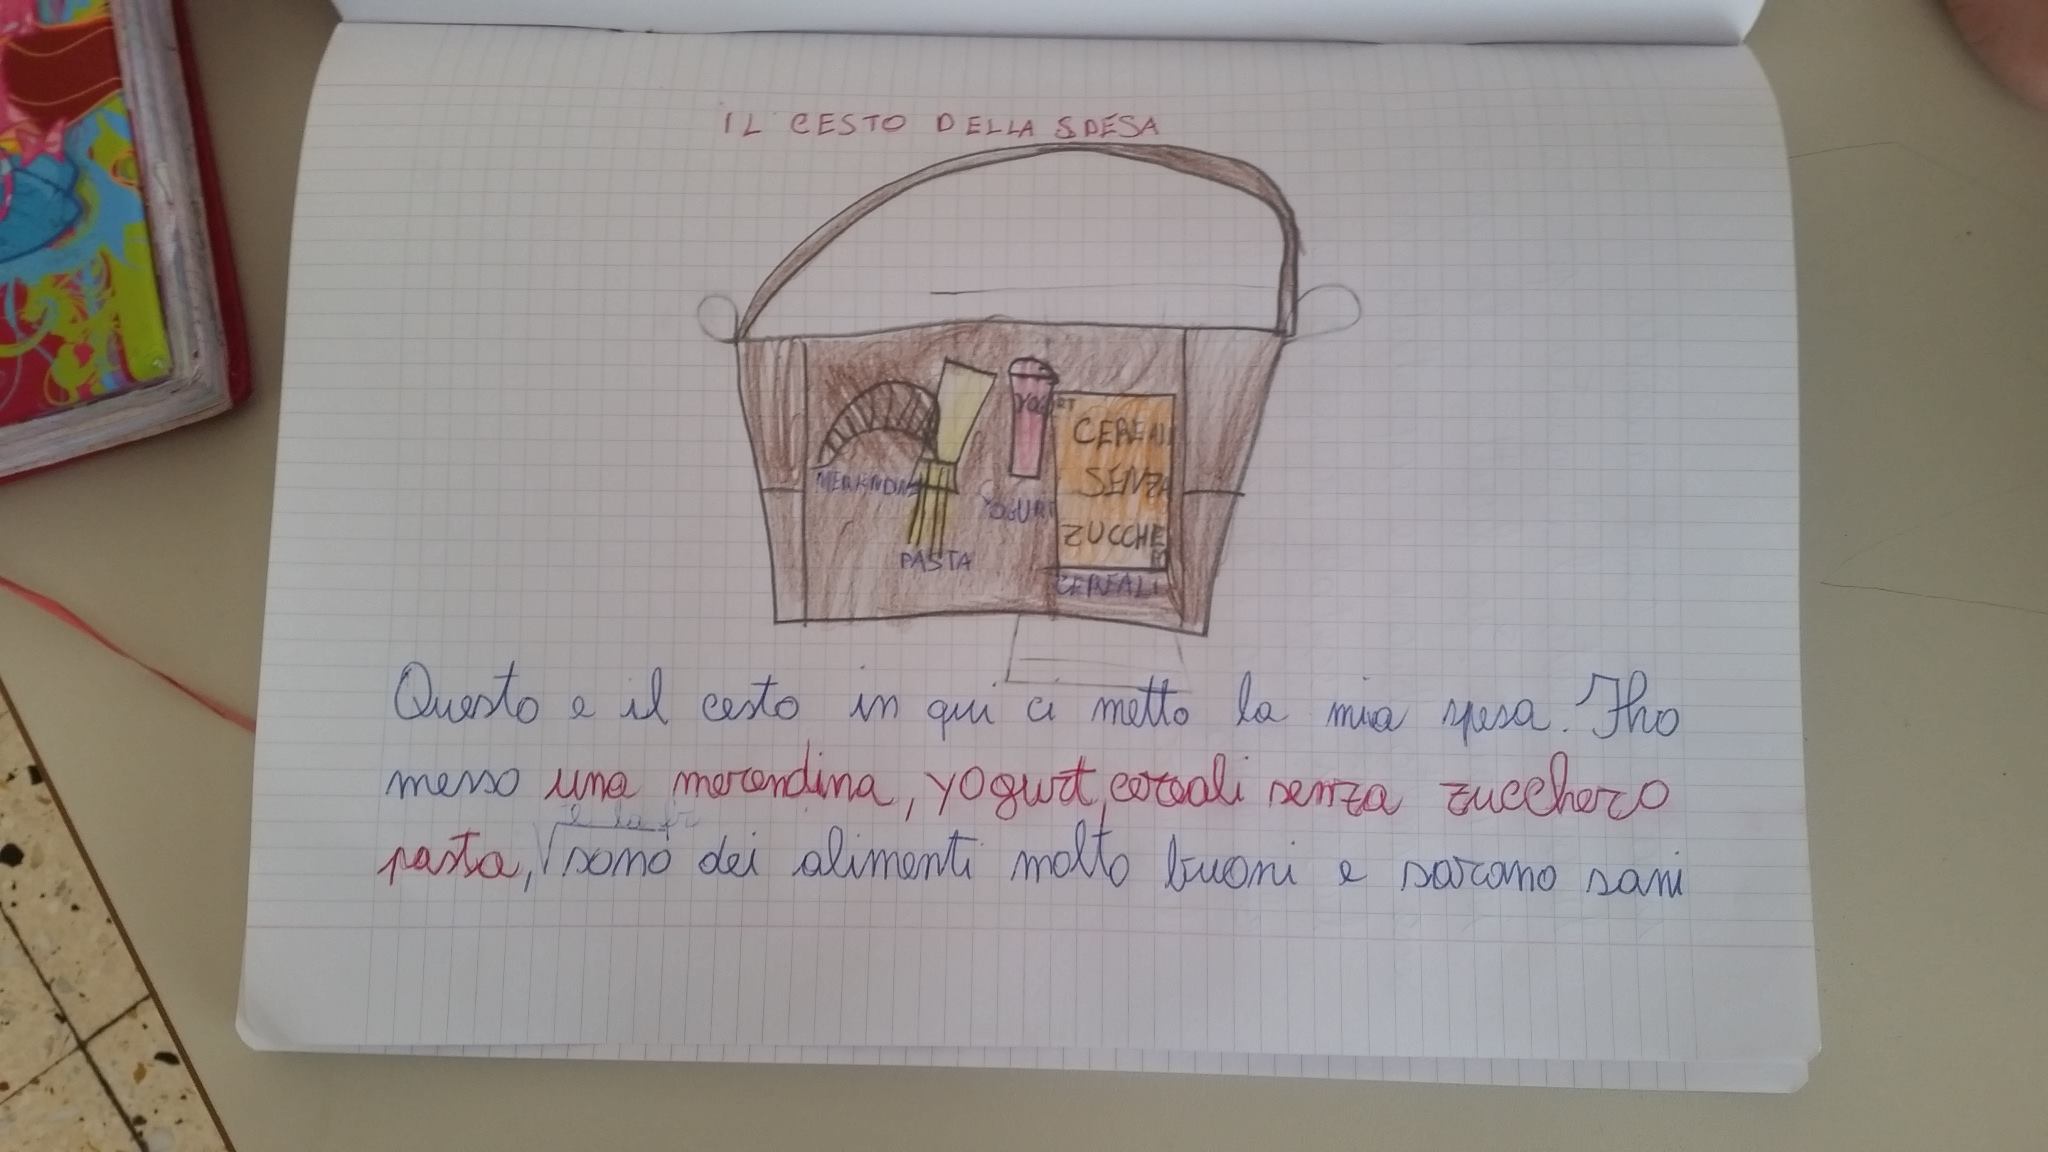 IL CESTO DELLA SPESA
YOGURT
CEREALI
SENZA
ZUCCHE
RO
MERENDINA
YOGURT
PASTA
CEREALI
Questo e il cesto in qui ci metto la mia spesa. Iho
messo una merendina, yogurt, cereali senza zucchero
pasta, sono dei alimenti molto buoni e sarano sani